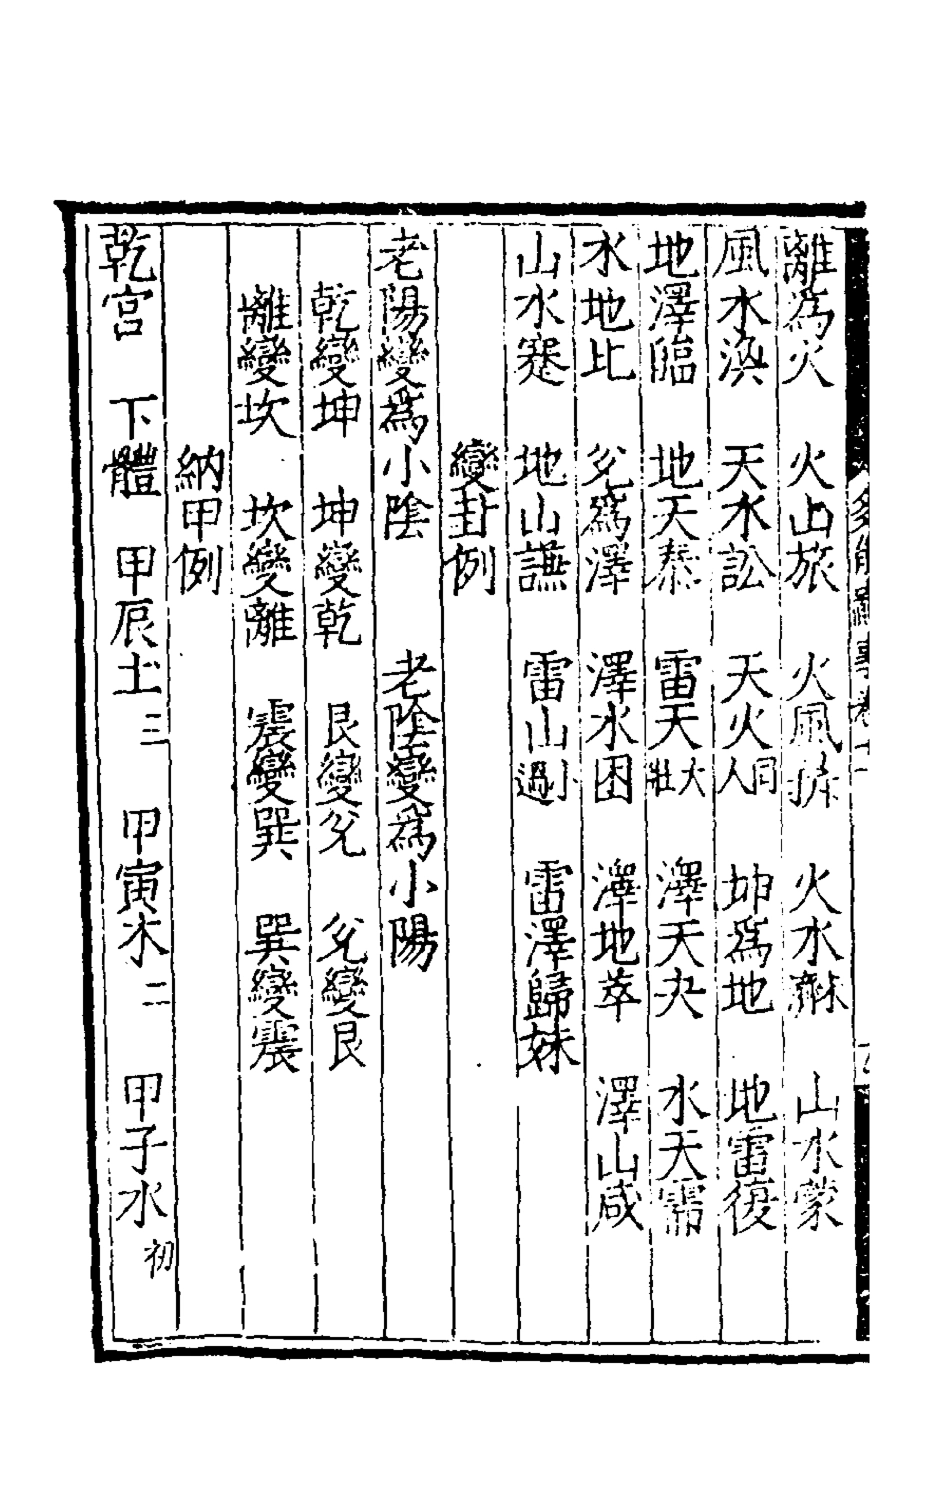 多能鄙事卷
離為火 火山旅 火風鼎 火水未濟 山水蒙
風水渙 天水訟 天火同人 坤爲地 地雷復
地澤臨 地天泰 雷天大壯 澤天夬 水天需
水地比 兊爲澤 澤水困 澤地萃 澤山咸
山水蹇 地山謙 雷山小過 雷澤歸妹
變卦例
老陽變爲小陰 老陰變爲小陽
乾變坤 坤變乾 艮變兊 兊變艮
離變坎 坎變離 震變巽 巽變震
納甲例
乾宮 下體 甲辰土三 甲寅木二 甲子水初